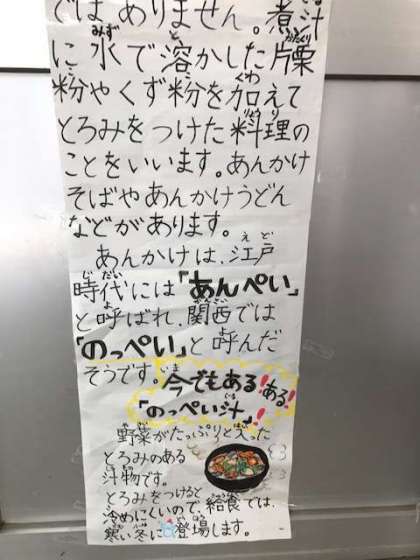 ではありません。煮汁
に水で溶かした片栗
粉やくず粉を加えて
とろみをつけた料理の
ことをいいます。あんかけ
そばやあんかけうどん
などがあります。
あんかけは、江戸
時代には「あんぺい」
と呼ばれ、関西では
「のっぺい」と呼んだ
そうです。今でもある!ある!
「のっぺい汁」!!
野菜がたっぷりと入った
とろみのある
汁物です。
とろみをつけると
冷めにくいので、給食では、
寒い冬に登場します。